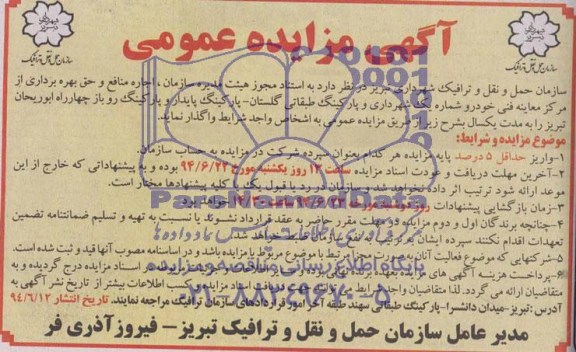 آگهی مزایده عمومی
سازمان حمل و نقل و ترافیک شهرداری تبریز در نظر دارد به استناد مجوز هیئت مدیره سازمان، اجاره منافع و حق بهره برداری از
مرکز معاینه فنی خودرو شماره یک شهرداری و پارکینگ طبقاتی گلستان- پارکینگ پایدار و پارکینگ رو باز چهارراه ابوریحان
تبریز را به مدت یکسال بشرح زیر از طریق مزایده عمومی به اشخاص واجد شرایط واگذار نماید.
موضوع مزایده و شرایط:
۱-واریز حداقل ۵ درصد پایه مزایده هر کدام بعنوان سپرده شرکت در مزایده به حساب سازمان.
۲-آخرین مهلت دریافت و عودت اسناد مزایده ساعت ۱۳ روز یکشنبه مورخ ۹۴/۶/۲۲ بوده و به پیشنهاداتی که خارج از این
موعد ارائه شود ترتیب اثر داده نخواهد شد و سازمان در رد یا قبول یک یا کلیه پیشنهادها مختار است.
۳-زمان بازگشایی پیشنهادات روز خواهد بود.
۴-چنانچه برندگان اول و دوم مزایده در مهلت مقرر حاضر به عقد قرارداد نشوند یا نسبت به تهیه و تسلیم ضمانتنامه تضمین
تعهدات اقدام نکنند سپرده ایشان به ترتیب به نفع سازمان خواهد شد.
۵-شرکتهایی که موضوع فعالیت آنان به صورت مرتبط با موضوع مربوط یا مزایده باشد و در اساسنامه مصوب آنها قید و ثبت شده است.
۶-پرداخت هزینه آگهی های مزایده بعهده اسناد مزایده درج گردیده و به
متقاضیان ارائه می گردد. لذا متقاضیان واجد شرایط می توانند کسب اطلاعات بیشتر از تاریخ نشر آگهی به
آدرس: تبریز-میدان دانشسرا- پارکینگ طبقاتی سهند طبقه آخر امور قراردادهای سازمان ترافیک مراجعه نمایند. تاریخ انتشار ۹۴/۶/۱۲
مدیر عامل سازمان حمل و نقل و ترافیک تبریز- فیروز آذری فر
پایگاه اطلاع رسانی
۰۲۱-۸۸۳۴۹۶۷۰-۵